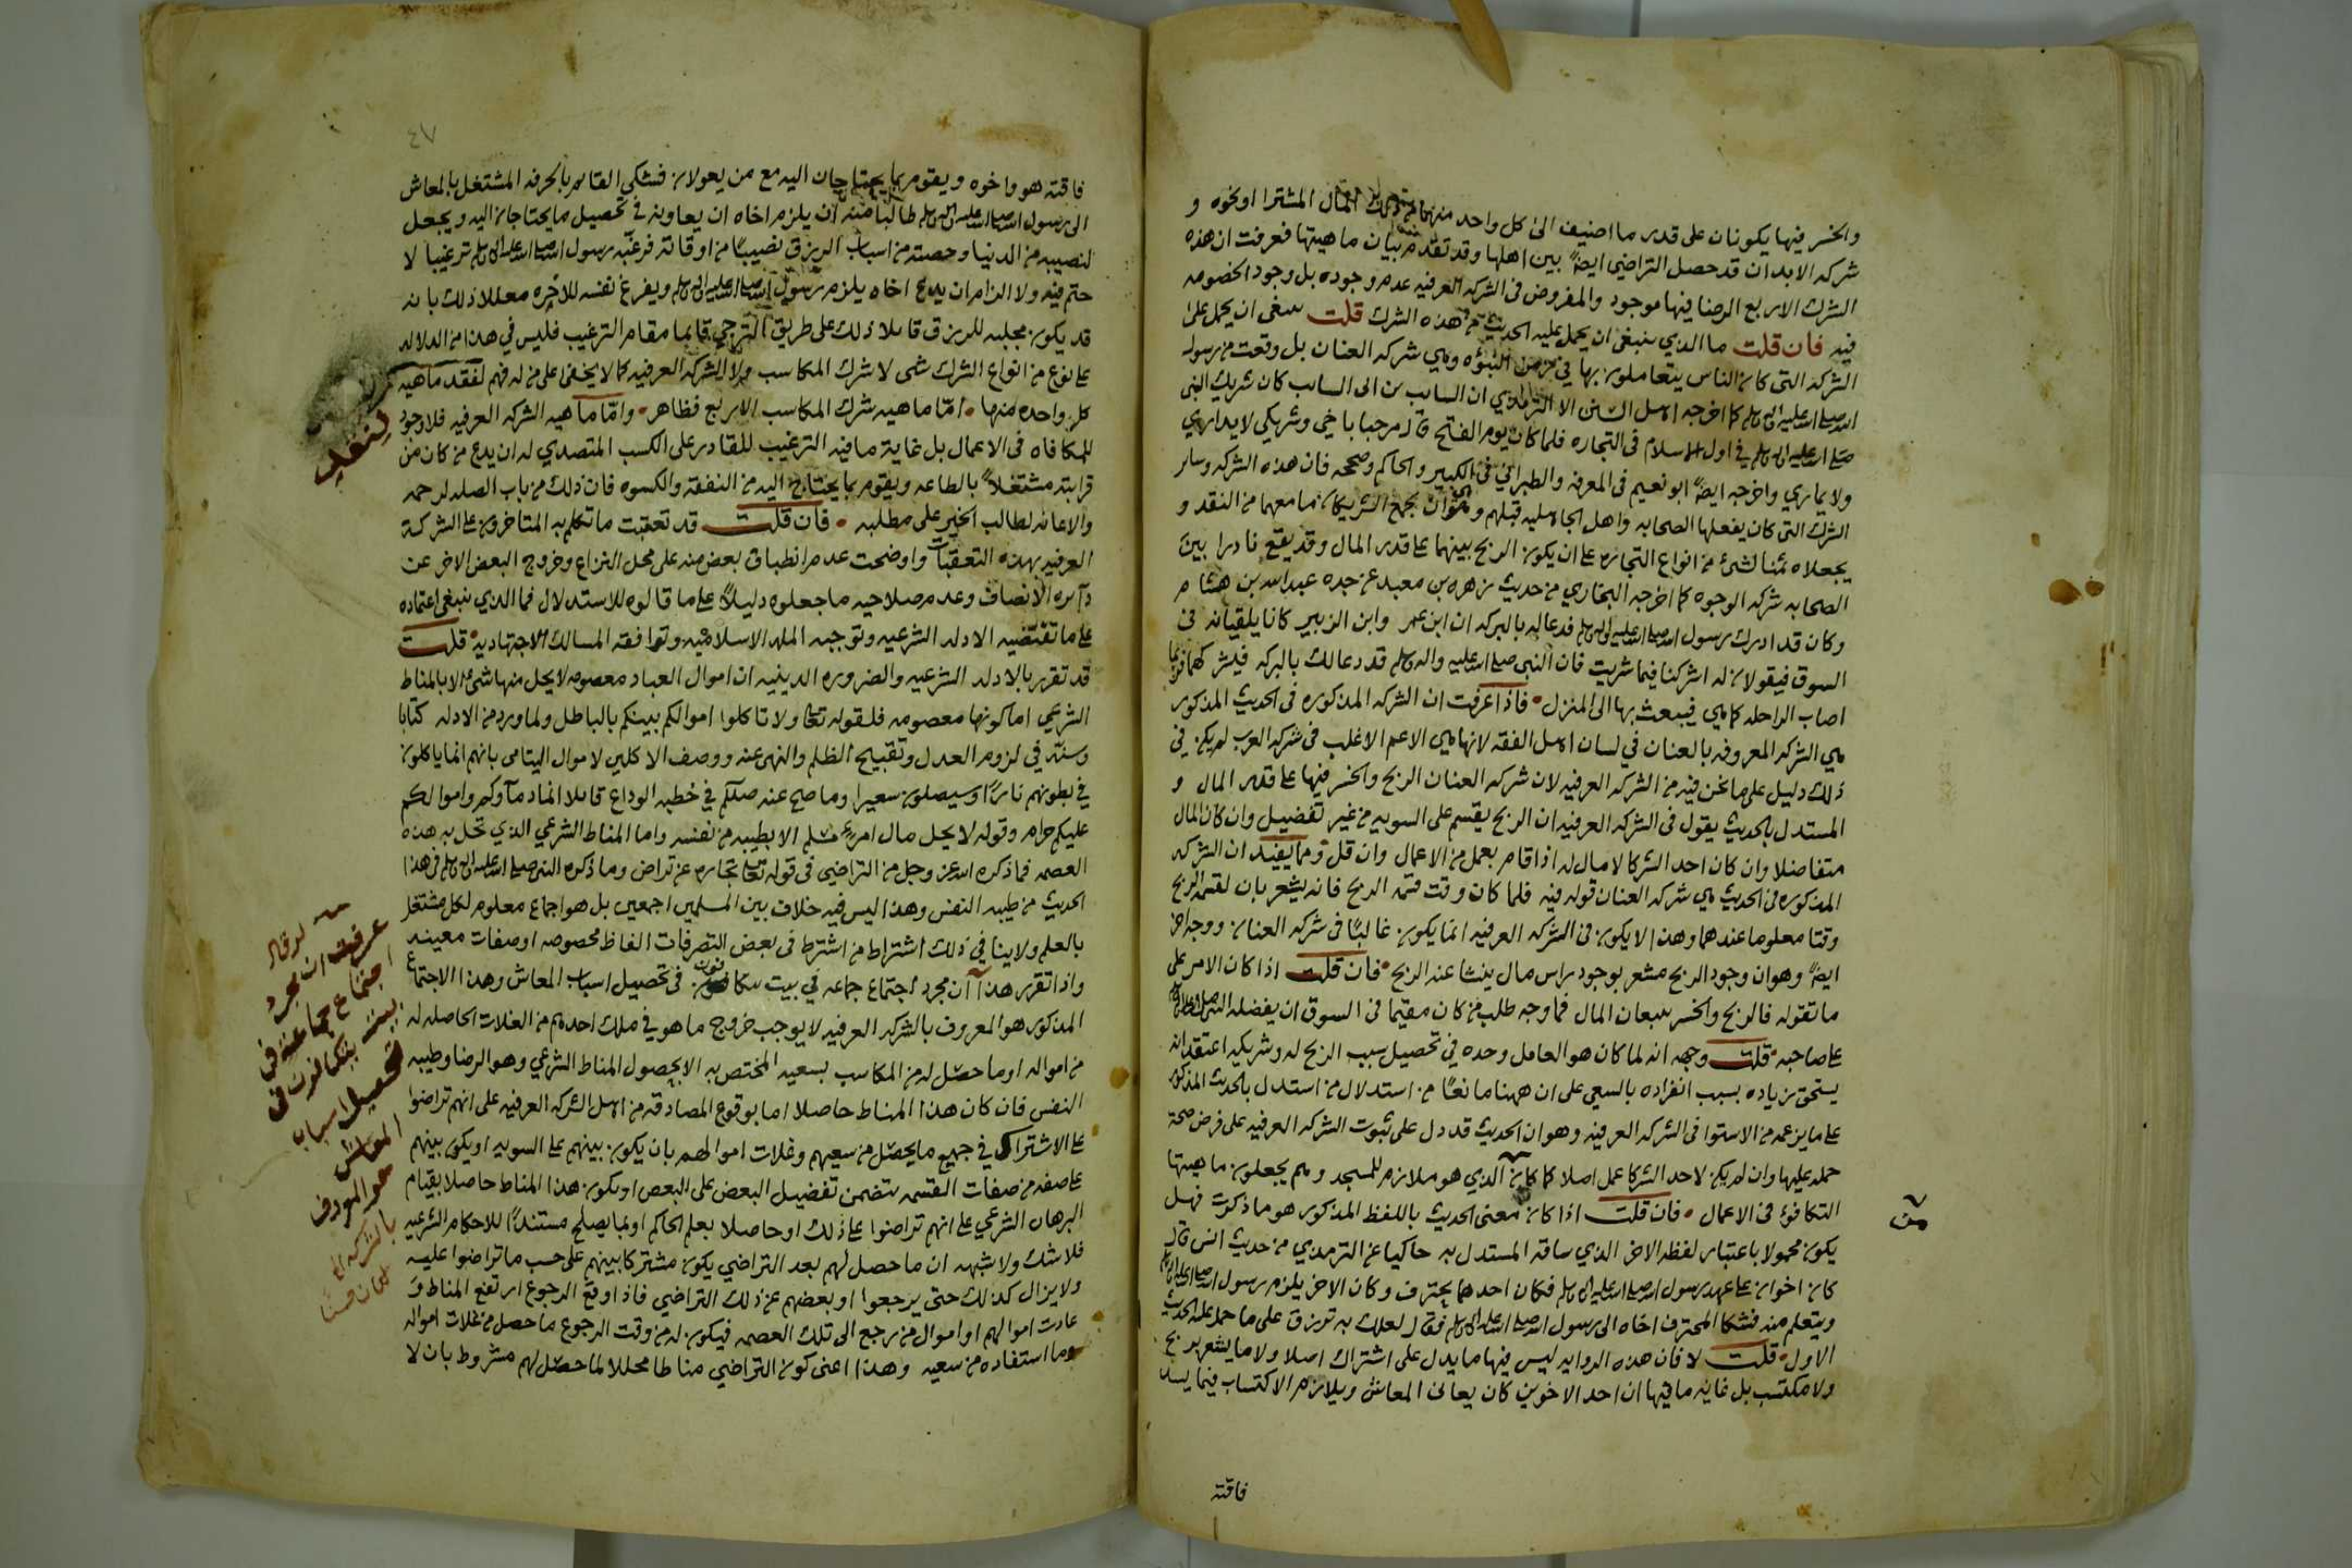 والخسر فيها يكونان على قدر ما اضيف الى كل واحد منهما من ذلك المال المشترا او نحوه و
شركه الابدان قد حصل التراضي ايضاً بين اهلها وقد تقدم بيان ماهيتها فعرفت ان هذه
الشرك الاربع الرضا فيها موجود والمفروض في الشركه العرفيه عدم وجوده بل وجود الخصومه
فيه فان قلت ما الذي ينبغي ان يحمل عليه الحديث من هذه الشرك قلت ينبغي ان يحمل على
الشركه التي كان الناس يتعاملون بها في زمن النبوه وهي شركه العنان بل وقعت من رسول
الله صلى الله عليه واله وسلم كما اخرجه اهل السنن الا الترمذي ان السايب بن ابي السايب كان شريك النبي
صلى الله عليه واله وسلم في اول الاسلام في التجاره فلما كان يوم الفتح قال مرحبا باخي وشريكي لا يداري
ولا يماري واخرجه ايضاً ابو نعيم في المعرفه والطبراني في الكبير والحاكم وصححه فان هذه الشركه وساير
الشرك التي كان يفعلها الصحابه واهل الجاهليه قبلهم هي ان يجمع الشريكان ما معهما من النقد و
يجعلاه ثمنا لشئ من انواع التجاره على ان يكون الربح بينهما على قدر المال وقد يقع نادرا بين
الصحابه شركه الوجوه كما اخرجه البخاري من حديث زهره بن معبد عن جده عبدالله بن هشام
وكان قد ادرك رسول الله صلى الله عليه واله وسلم فدعا له بالبركه ان ابن عمر وابن الزبير كانا يلقيانه في
السوق فيقولان له اشركنا فيما شريت فان النبي صلى الله عليه واله وسلم قد دعا لك بالبركه فيشركهما فربما
اصاب الراحله كما هي فيبعث بها الى المنزل فاذا عرفت ان الشركه المذكوره في الحديث المذكور
هي الشركه المعروفه بالعنان في لسان اهل الفقه لانها هي الاعم الاغلب في شركه العرب لم يكن في
ذلك دليل على ما نحن فيه من الشركه العرفيه لان شركه العنان الربح والخسر فيها على قدر المال و
المستدل بالحديث يقول في الشركه العرفيه ان الربح يقسم على السويه من غير تفضيل وان كان المال
متفاضلا وان كان احد الشركا لا مال له اذا قام بعمل من الاعمال وان قل ومما يفيد ان الشركه
المذكوره في الحديث هي شركه العنان قوله فيه فلما كان وقت قسمه الربح فانه يشعر بان لقسمه الربح
وقتا معلوما عندهما وهذا لا يكون في الشركه العرفيه انما يكون غالباً في شركه العنان ووجه اخر
ايضاً وهو ان وجود الربح مشعر بوجود راس مال ينشا عنه الربح فان قلت اذا كان الامر على
ما تقوله فالربح والخسر يتبعان المال فما وجه طلب من كان مقيما في السوق ان يفضله النبي صلى الله عليه واله وسلم
على صاحبه قلت وجهه انه لما كان هو العامل وحده في تحصيل سبب الربح له وشريكه اعتقد انه
يستحق زياده بسبب انفراده بالسعي على ان ههنا مانعاً من استدلال من استدل بالحديث المذكور
على ما يزعمه من الاستوا في الشركه العرفيه وهو ان الحديث قد دل على ثبوت الشركه العرفيه على فرض صحة
حمله عليها وان لم يكن لاحد الشركا عمل اصلا كما كان الذي هو ملازم للمسجد وهم يجعلون ماهيتها
التكافؤ في الاعمال فان قلت اذا كان معنى الحديث باللفظ المذكور هو ما ذكرت فهل
يكون محمولا باعتبار لفظه الاخر الذي ساقه المستدل به حاكيا عن الترمذي من حديث انس قال
كان اخوان على عهد رسول الله صلى الله عليه واله وسلم فكان احدهما يحترف وكان الاخر يلزم رسول الله صلى الله عليه واله وسلم
ويتعلم منه فشكا المحترف اخاه الى رسول الله صلى الله عليه واله وسلم فقال لعلك به ترزق على ما حمل عليه الحديث
الاول قلت لا فان هذه الروايه ليس فيها ما يدل على اشتراك اصلا ولا ما يشعر بربح
ولا مكتسب بل غايه ما فيها ان احد الاخوين كان يعاني المعاش ويلازم الاكتساب فيما يسد
فاقته
٤٧
فاقته هو واخوه ويقوم بما يحتاجان اليه مع من يعولان فشكى القايم بالحرفه المشتغل بالمعاش
الى رسول الله صلى الله عليه واله وسلم طالبا منه ان يلزم اخاه ان يعاونه في تحصيل ما يحتاجان اليه ويجعل
لنصيبه من الدنيا وحصته من اسباب الرزق نصيباً من اوقاته فرغبه رسول الله صلى الله عليه واله وسلم ترغيبا لا
حتم فيه ولا الزام ان يدع اخاه يلزم رسول الله صلى الله عليه واله وسلم ويفرغ نفسه للاخره معللا ذلك بانه
قد يكون مجلبه للرزق قايلا ذلك على طريق الترجي قايما مقام الترغيب فليس في هذا من الدلاله
على نوع من انواع الشرك شى لا شرك المكاسب ولا الشركه العرفيه كما لا يخفى على من له فهم لفقد ماهيه
كل واحده منها اما ماهيه شرك المكاسب الاربع فظاهر واما ماهيه الشركه العرفيه فلا وجود
للمكافاه في الاعمال بل غاية ما فيه الترغيب للقادر على الكسب المتصدي له ان يدع من كان من
قرابته مشتغلاً بالطاعه ويقوم بما يحتاج اليه من النفقه والكسوه فان ذلك من باب الصله للرحم
والاعانه لطالب الخير على مطلبه فان قلت قد تعقبت ما تكلم به المتاخرون على الشركة
العرفيه بهذه التعقبات واوضحت عدم انطباق بعض منه على محل النزاع وخروج البعض الاخر عن
دايره الانصاف وعدم صلاحيه ما جعلوه دليلاً على ما قالوه للاستدلال فما الذي ينبغي اعتماده
على ما تقتضيه الادله الشرعيه وتوجبه المله الاسلاميه وتوافقه المسالك الاجتهاديه قلت
قد تقرر بالادله الشرعيه والضروره الدينيه ان اموال العباد معصومه لا يحل منها شئ الا بالمناط
الشرعي اما كونها معصومه فلقوله تعالى ولا تاكلوا اموالكم بينكم بالباطل ولما ورد من الادله كتابا
وسنة في لزوم العدل وتقبيح الظلم والنهي عنه ووصف الاكلين لاموال اليتامى بانهم انما ياكلون
في بطونهم ناراً وسيصلون سعيرا وما صح عنه صللم في خطبه الوداع قايلا انما دماؤكم واموالكم
عليكم حرام وقوله لا يحل مال امرئ مسلم الا بطيبه من نفسه واما المناط الشرعي الذي تحل به هذه
العصمه فما ذكره الله عز وجل من التراضي في قوله تعالى تجاره عن تراض وما ذكره النبي صلى الله عليه واله وسلم في هذا
الحديث من طيبه النفس وهذا ليس فيه خلاف بين المسلمين اجمعين بل هو اجماع معلوم لكل مشتغل
بالعلم ولا ينافي ذلك اشتراط من اشترط في بعض التصرفات الفاظ مخصوصه او صفات معينه
واذا تقرر هذا ان مجرد اجتماع جماعه في بيت يتكافون في تحصيل اسباب المعاش وهذا الاجتماع
المذكور هو المعروف بالشركه العرفيه لا يوجب خروج ما هو في ملك احدهم من الغلات الحاصله له
من امواله او ما حصل له من المكاسب بسعيه المختص به الا بحصول المناط الشرعي وهو الرضا وطيبه
النفس فان كان هذا المناط حاصلا اما بوقوع المصادقه من اهل الشركه العرفيه على انهم تراضوا
على الاشتراك في جميع ما يحصل من سعيهم وغلات اموالهم بان يكون بينهم على السويه او يكون بينهم
على صفه من صفات القسمه يتضمن تفضيل البعض على البعض او يكون هذا المناط حاصلا بقيام
البرهان الشرعي على انهم تراضوا على ذلك او حاصلا بعلم الحاكم او بما يصلح مستنداً للاحكام الشرعيه
فلا شك ولا شبهه ان ما حصل لهم بعد التراضي يكون مشتركا بينهم على حسب ما تراضوا عليه
ولا يزال كذلك حتى يرجعوا او بعضهم عن ذلك التراضي فاذا وقع الرجوع ارتفع المناط و
عادت اموالهم او اموال من رجع الى تلك العصمه فيكون له من وقت الرجوع ما حصل من غلات امواله
وما استفاده من سعيه وهذا اعني كون التراضي مناطا محللا لما حصل لهم مشروط بان لا
لو قال
عرفت ان مجرد
اجتماع جماعة في
بيت يتكافون في
تحصيل اسباب
المعاش
هو المعروف
بالشركه الخ
لكان حسنا